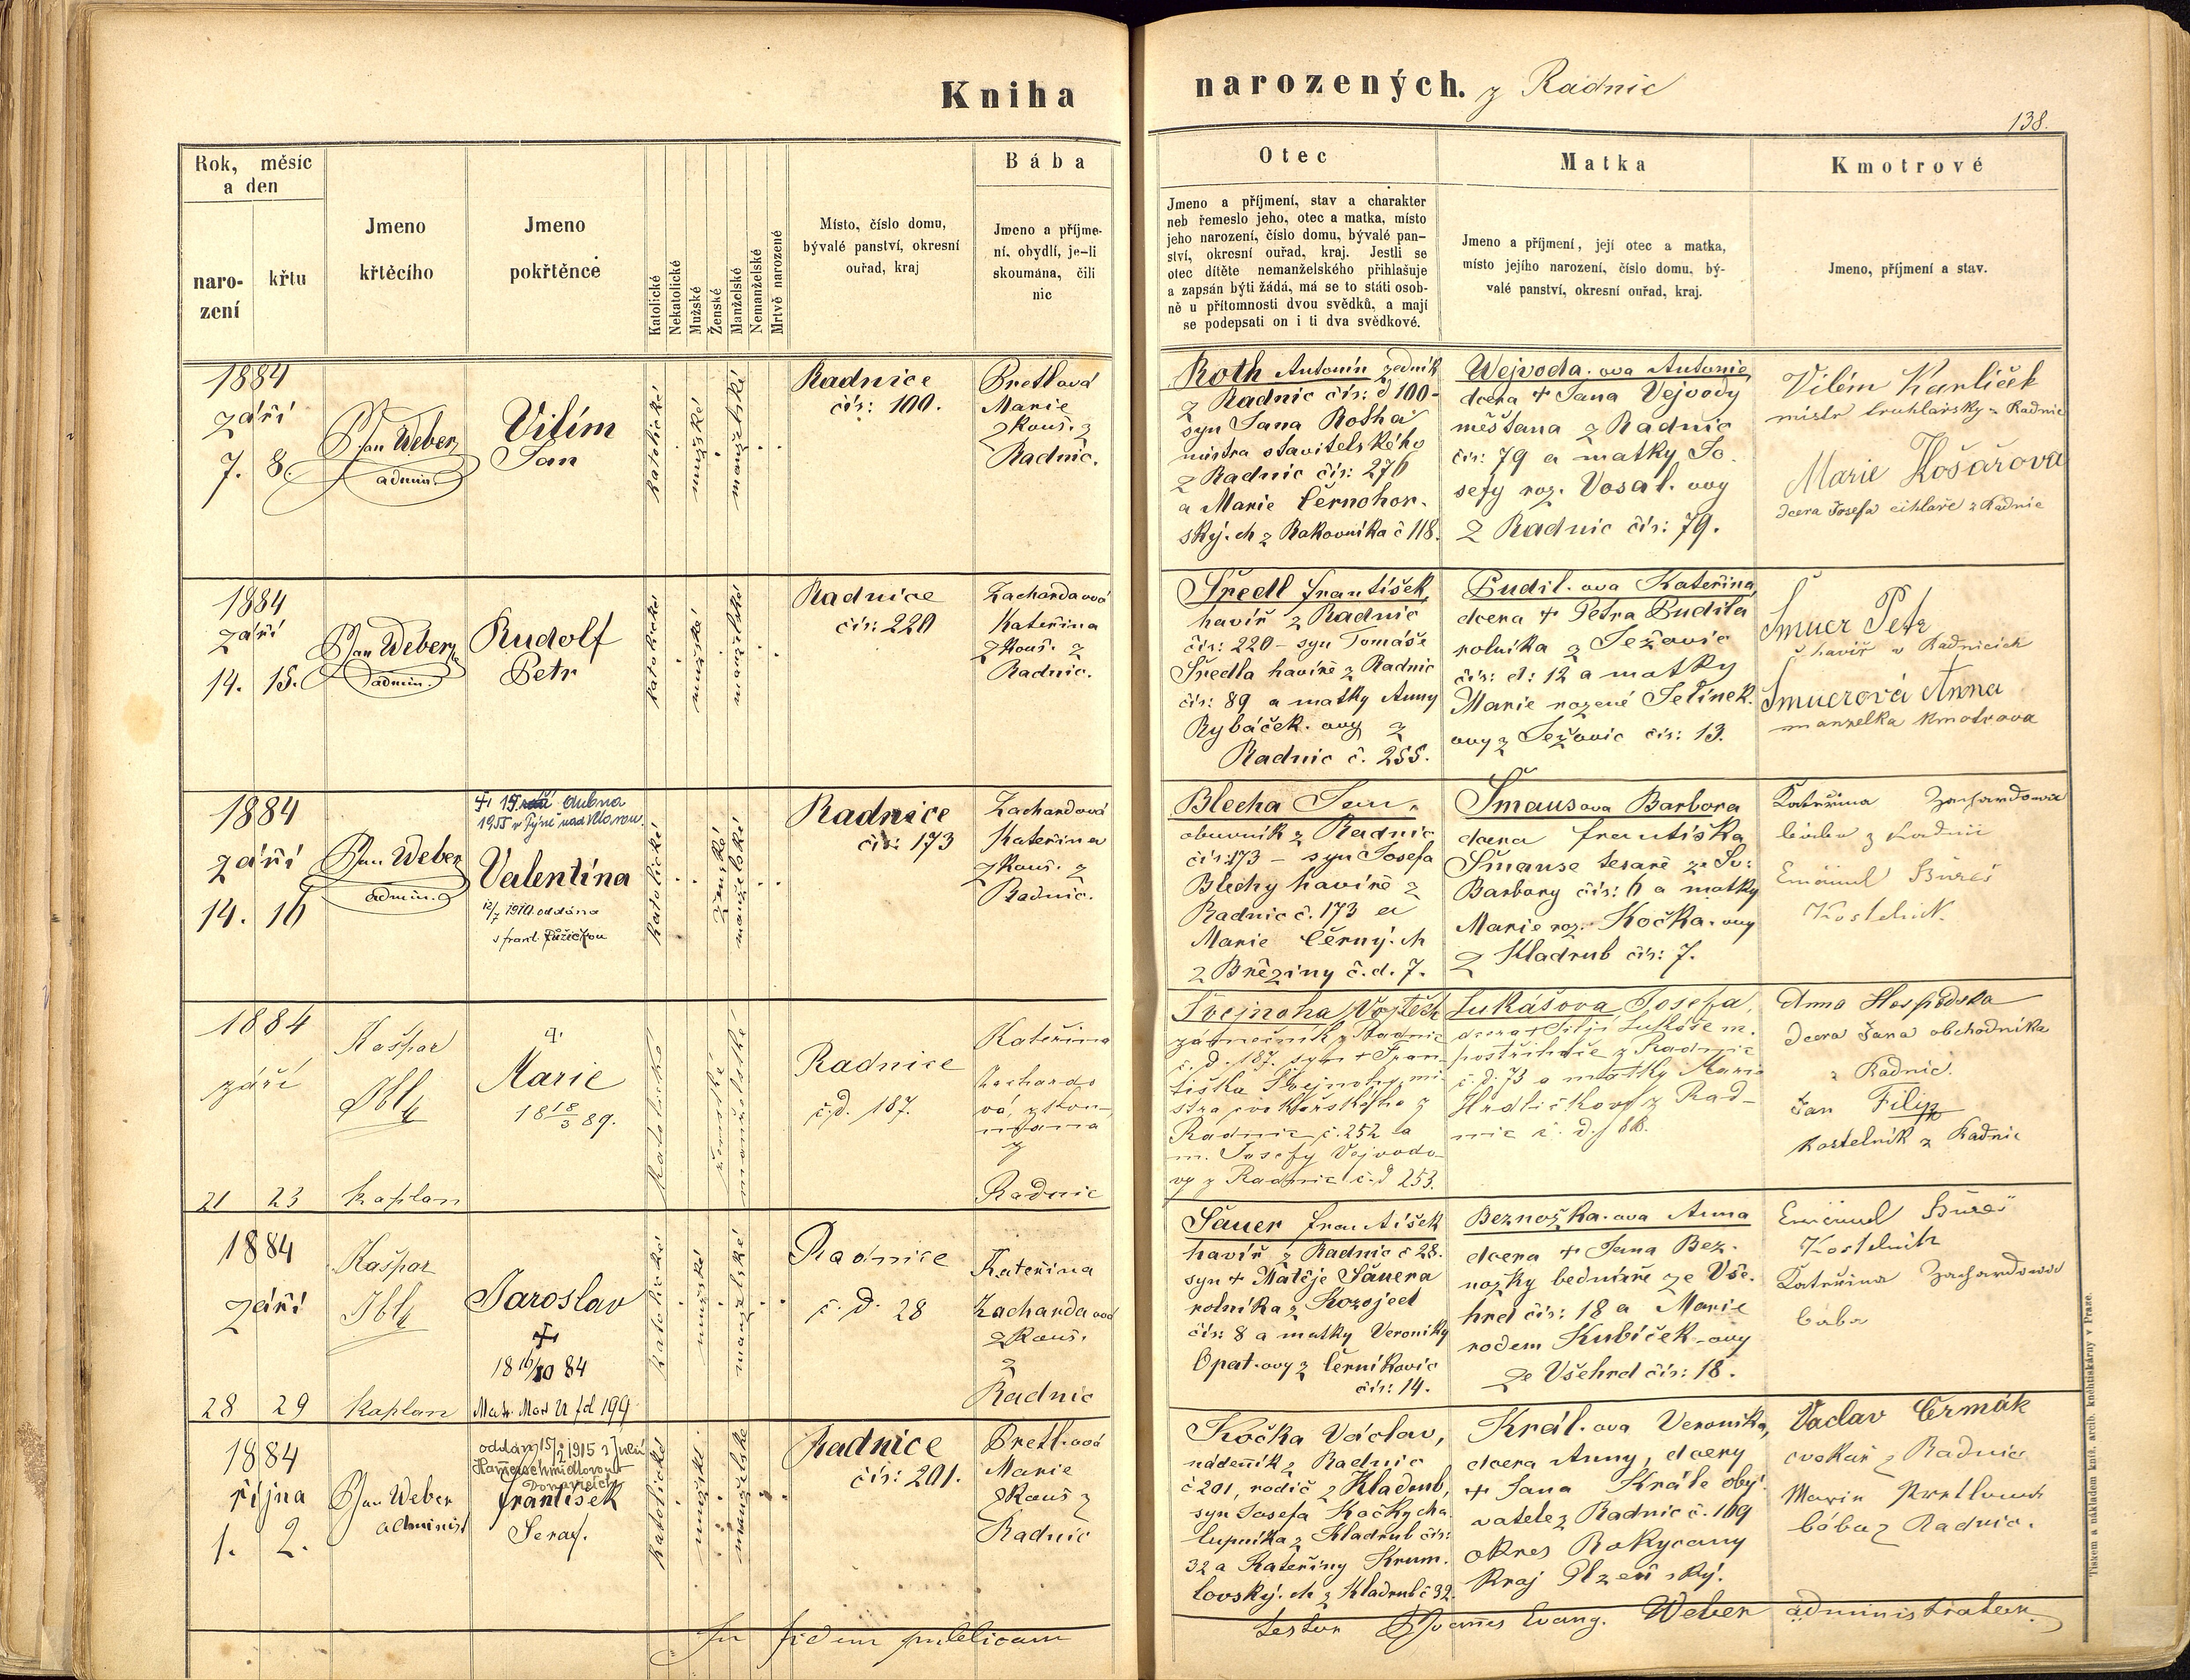 Kniha
narozených. z Radnic
138.
Rok, měsíc
a den
naro-
zení
křtu
Jmeno
křtěcího
Jmeno
pokřtěnce
Katolické
Nekatolické
Mužské
Ženské
Manželské
Nemanželské
Mrtvě narozené
Místo, číslo domu,
bývalé panství, okresní
ouřad, kraj
Bába
Jmeno a příjme-
ní, obydlí, je-li
skoumána, čili
nic
Otec
Jmeno a příjmení, stav a charakter
neb řemeslo jeho, otec a matka, místo
jeho narození, číslo domu, bývalé pan-
ství, okresní ouřad, kraj. Jestli se
otec dítěte nemanželského přihlašuje
a zapsán býti žádá, má se to státi osob-
ně u přítomnosti dvou svědků, a mají
se podepsati on i ti dva svědkové.
Matka
Jmeno a příjmení, její otec a matka,
místo jejího narození, číslo domu, bý-
valé panství, okresní ouřad, kraj.
Kmotrové
Jmeno, příjmení a stav.
1884
září
7. 8.
Jan Weber
admin.
Vilím
Jan
katolické
mužské
manželské
Radnice
čís: 100.
Bretlová
Marie
zkouš. z
Radnic.
Roth Antonín zedník
z Radnic čís: d 100-
syn Jana Rotha
mistra stavitelského
z Radnic čís: 276
a Marie Černohor.
ský.ch z Rakovníka č 118.
Wejvoda.ova Antonie,
dcera + Jana Vejvody
měšťana z Radnic
čís: 79 a matky Jo.
sefy roz. Vosal.ovy
z Radnic čís: 79.
Vilém Karlíček
mistr truhlářský z Radnic
Marie Košařova
dcera Josefa cihláře z Radnic
1884
září
14. 15.
Jan Weber
admin.
Rudolf
Petr
katolické
mužské
manželské
Radnice
čís: 220
Zachardaová
Kateřina
zkouš. z
Radnic.
Šredl František,
havíř z Radnic
čís: 220 - syn Tomáše
Šredla havíře z Radnic
čís: 89 a matky Anny
Rybáček.ovy z
Radnic č. 255.
Budil.ova Kateřina,
dcera + Petra Budila
rolníka z Težovic
čís: d: 12 a matky
Marie rozené Jelínek.
ovy z Težovic čís: 13.
Šmucr Petr
havíř v Radnicích
Šmucrová Anna
manželka kmotrova
1884
září
14. 16
Jan Weber
admin.
+ 15. dubna
1955 v Týně nad Vltavou.
Valentina
12/7 1910 oddána
s frant. Růžičkou
katolické
ženské
manželské
Radnice
čís: 173
Zachardová
Kateřina
zkouš. z
Radnic.
Blecha Jan,
obuvník z Radnic
čís: 173 - syn Josefa
Blechy havíře z
Radnic č. 173 a
Marie Černý.ch
z Březiny č.d. 7.
Šmausova Barbora
dcera Františka
Šmause tesaře ze Sv:
Barbory čís: 6 a matky
Marie roz. Kočka.ovy
z Kladrub čís: 7.
Kateřina Zachardová
bába z Radnic
Emanuel Bureš
Kostelník.
1884
září
21 23
Kašpar
Ibl
kaplan
Marie
18 18/3 89.
katolické
ženské
manželské
Radnice
č.d. 187.
Kateřina
Zachardo
vá, zkou-
maná
z
Radnic
Švejnoha Vojtěch
zámečník z Radnic
č. d. 187. syn + Fran-
tiška Švejnohy, mi-
stra cvokařského z
Radnic č. 252 a
m. Josefy Vejvodo-
vy z Radnic č.d 253.
Lukášova Josefa,
dcera + Lukáše m.
postřihače z Radnic
č. d. 73 a matky Marie
Hrdličkovy z Rad-
nic č. d. 88.
Anna Hospodska
dcera Jana obchodníka
z Radnic.
Jan Filip
kostelník z Radnic
1884
září
28 29
Kašpar
Ibl
kaplan
Jaroslav
+
18 16/10 84
Matr. Mor. fol 199
katolické
mužské
manželské
Radnice
č. d. 28
Kateřina
Zachardaová
zkouš.
z
Radnic
Šauer František
havíř z Radnic č 28.
syn + Matěje Šauera
rolníka z Kozojed
čís: 8 a matky Veroniky
Opat.ovy z Černíkovic
čís: 14.
Beznožka.ova Anna
dcera + Jana Bez.
nožky bednáře ze Vše.
hrd čís: 18 a Marie
rodem Kubíček.ovy
ze Všehrd čís: 18.
Emanuel Bureš
Kostelník
Kateřina Zachardová
bába
1884
října
1. 2.
Jan Weber
administ
oddán 15/2 1915 s Julií
Hamerschmidlovou
František
Seraf.
katolické
mužské
manželské
Radnice
čís: 201.
Bretl.ová
Marie
zkouš z
Radnic
Kočka Václav,
nádeník z Radnic
č 201, rodič z Kladrub,
syn Josefa Kočky cha
lupníka z Kladrub čís:
32 a Kateřiny Krum.
lovský.ch z Kladrub č 32.
Král.ova Veronika,
dcera Anny, dcery
+ Jana Krále oby.
vatele z Radnic č. 169
okres Rokycany
kraj Plzeňský.
Vaclav Čermák
cvokař z Radnic
Marie Bretlová
bába z Radnic.
In fidem publicam
testor Joannes Evang. Weber administrator.
Tiskem a nákladem kníž. arcib. knihtiskárny v Praze.